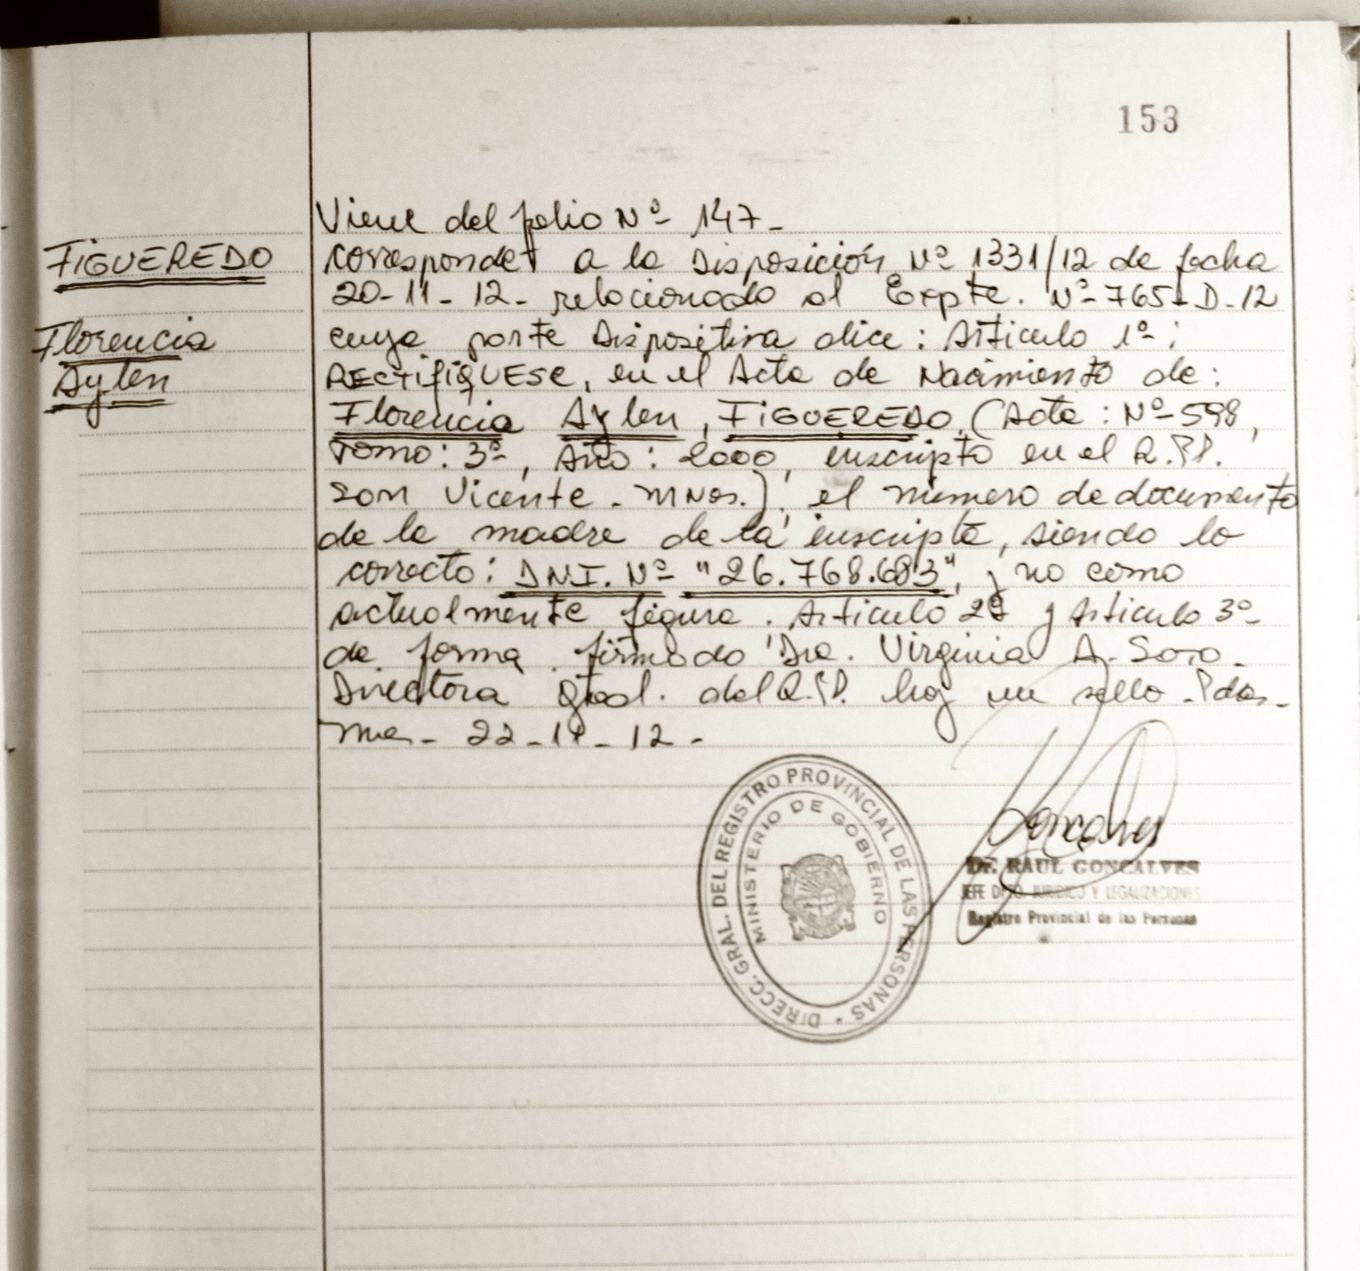 153
Viene del folio Nº 147-
FIGUEREDO
Corresponde a la Disposición Nº 1331/12 de fecha
20-11-12- relacionado al Expte. Nº-765-D-12
Florencia
cuya parte Dispositiva dice: Articulo 1º:
Aylen
RECTIFIQUESE, en el Acta de Nacimiento de:
Florencia Aylen, FIGUEREDO (Acta: Nº-598,
Tomo: 3º, Año: 2000, inscripto en el R.P.P.
San Vicente - Mnes.), el número de documento
de la madre de la inscripta, siendo lo
correcto: DNI. Nº "26.768.683", y no como
actualmente figura. Articulo 2º y Articulo 3º
de forma firmado Dra. Virginia A. Soro-
Directora Gral. del R.P.P. hay un sello - Pdas-
Mnes- 22-11-12-
DIRECC. GRAL. DEL REGISTRO PROVINCIAL DE LAS PERSONAS
MINISTERIO DE GOBIERNO
Dr. RAUL GONCALVES
JEFE DPTO. JURIDICO Y LEGALIZACIONES
Registro Provincial de las Personas